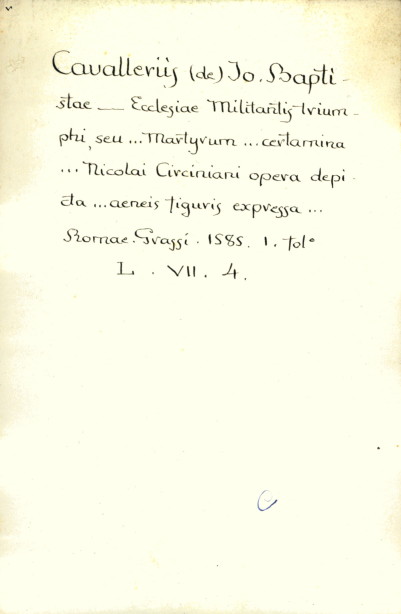 Cavalleriis (de) Jo. Bapti-
stae — Ecclesiae Militantis trium-
phi, seu ... Martyrum ... certamina
... Nicolai Circiniani opera depi-
cta ... aeneis figuris expressa ...
Romae. Grassi. 1585. 1. folº
L. VII. 4.